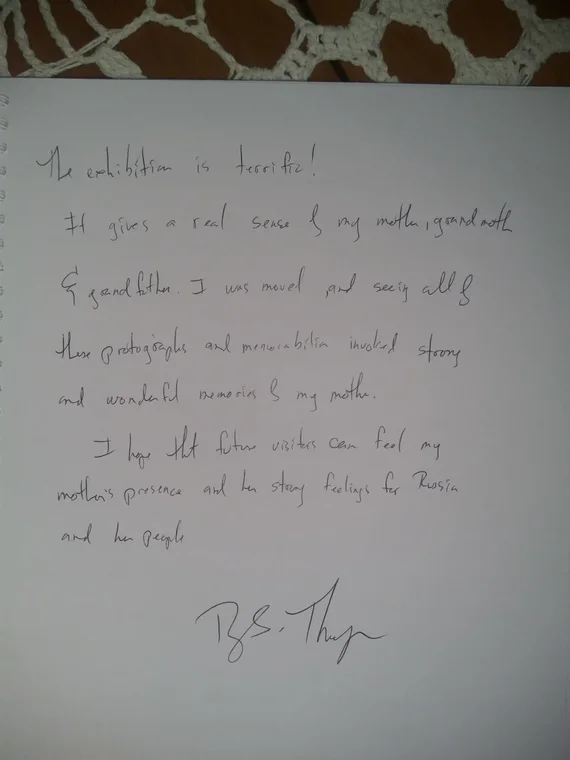 The exhibition is terrific!
It gives a real sense of my mother, grandmoth
& grandfather. I was moved and seeing all of
these photographs and memorabilia invoked strong
and wonderful memories of my mother.
I hope that future visitors can feel my
mother's presence and her strong feelings for Russia
and her people